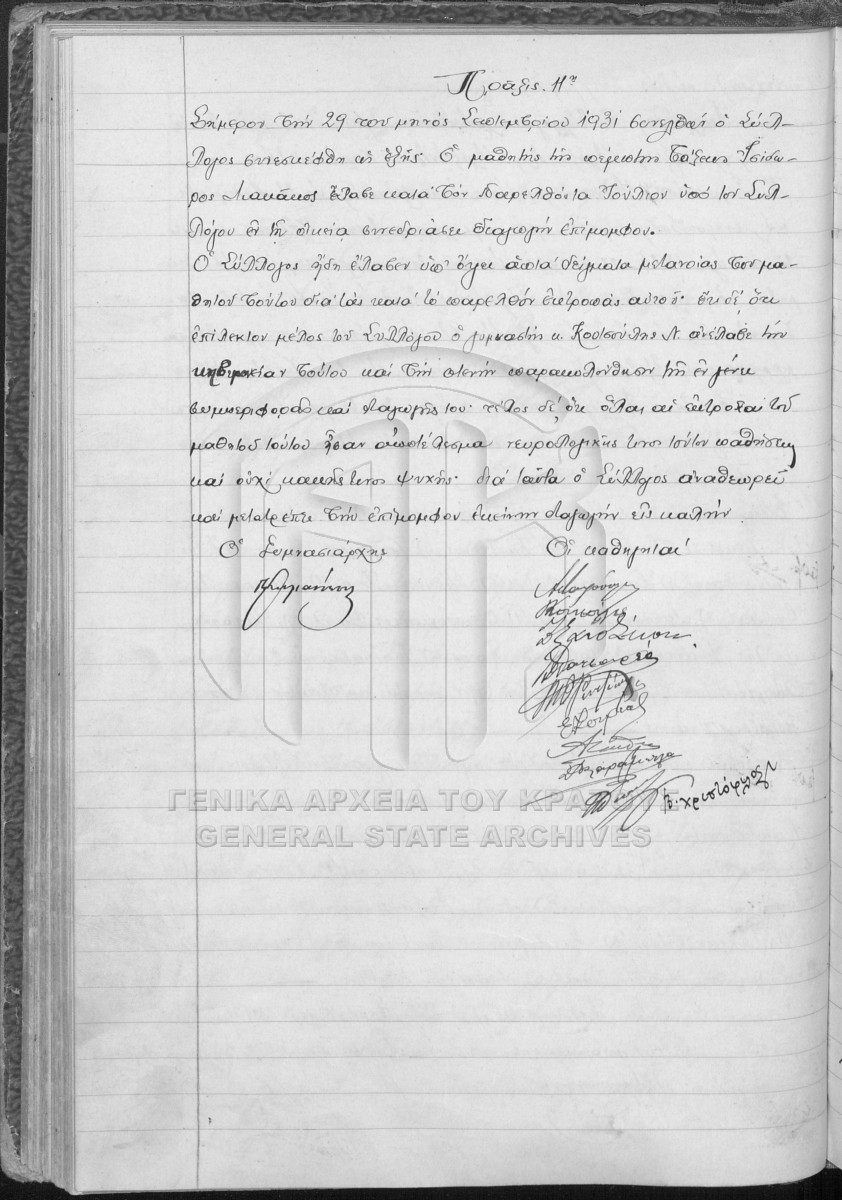 Πρᾶξις 11η
Σήμερον τὴν 29 τοῦ μηνὸς Σεπτεμβρίου 1931 συνελθὼν ὁ Σύλ-
λογος συνεσκέφθη ὡς ἑξῆς· Ὁ μαθητὴς τῆς πέμπτης τάξεως Ἰσίδω-
ρος Λιακάκος ἔλαβε κατὰ τὸν παρελθόντα Ἰούλιον ὑπὸ τοῦ Συλ-
λόγου ἐν τῇ οἰκείᾳ συνεδριάσει διαγωγὴν ἐπίμομφον.
Ὁ Σύλλογος ἤδη ἔλαβεν ὑπ' ὄψει ἁπτὰ δείγματα μετανοίας τοῦ μα-
θητοῦ τούτου διὰ τὰς κατὰ τὸ παρελθὸν ἐκτροπὰς αὐτοῦ· ἔτι δὲ ὅτι
ἐπίλεκτον μέλος τοῦ Συλλόγου ὁ γυμναστὴς κ. Κουτσούλης Ν. ἀνέλαβε τὴν
κηδεμονίαν τούτου καὶ τὴν στενὴν παρακολούθησιν τῆς ἐν γένει
συμπεριφορᾶς καὶ διαγωγῆς του· τέλος δὲ ὅτι ὅλαι αἱ ἐκτροπαὶ τοῦ
μαθητοῦ τούτου ἦσαν ἀποτέλεσμα νευρολογικῆς τινος τούτου παθήσεως
καὶ οὐχὶ κακῆς τινος ψυχῆς· διὰ ταῦτα ὁ Σύλλογος ἀναθεωρεῖ
καὶ μετατρέπει τὴν ἐπίμομφον ἐκείνην διαγωγὴν εἰς καλήν
Ὁ Γυμνασιάρχης Οἱ καθηγηταί
Β. Χριστόφιλος
ΓΕΝΙΚΑ ΑΡΧΕΙΑ ΤΟΥ ΚΡΑΤΟΥΣ
GENERAL STATE ARCHIVES